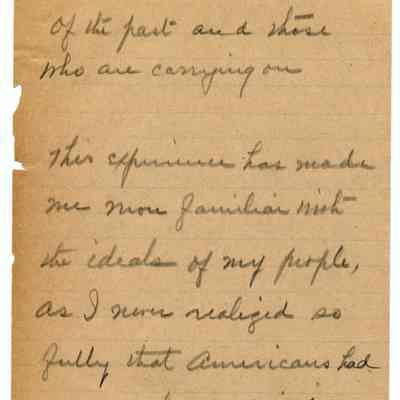 of the past and those
who are carrying on
This experience has made
me more familiar with
the ideals of my people,
as I never realized so
fully that Americans had